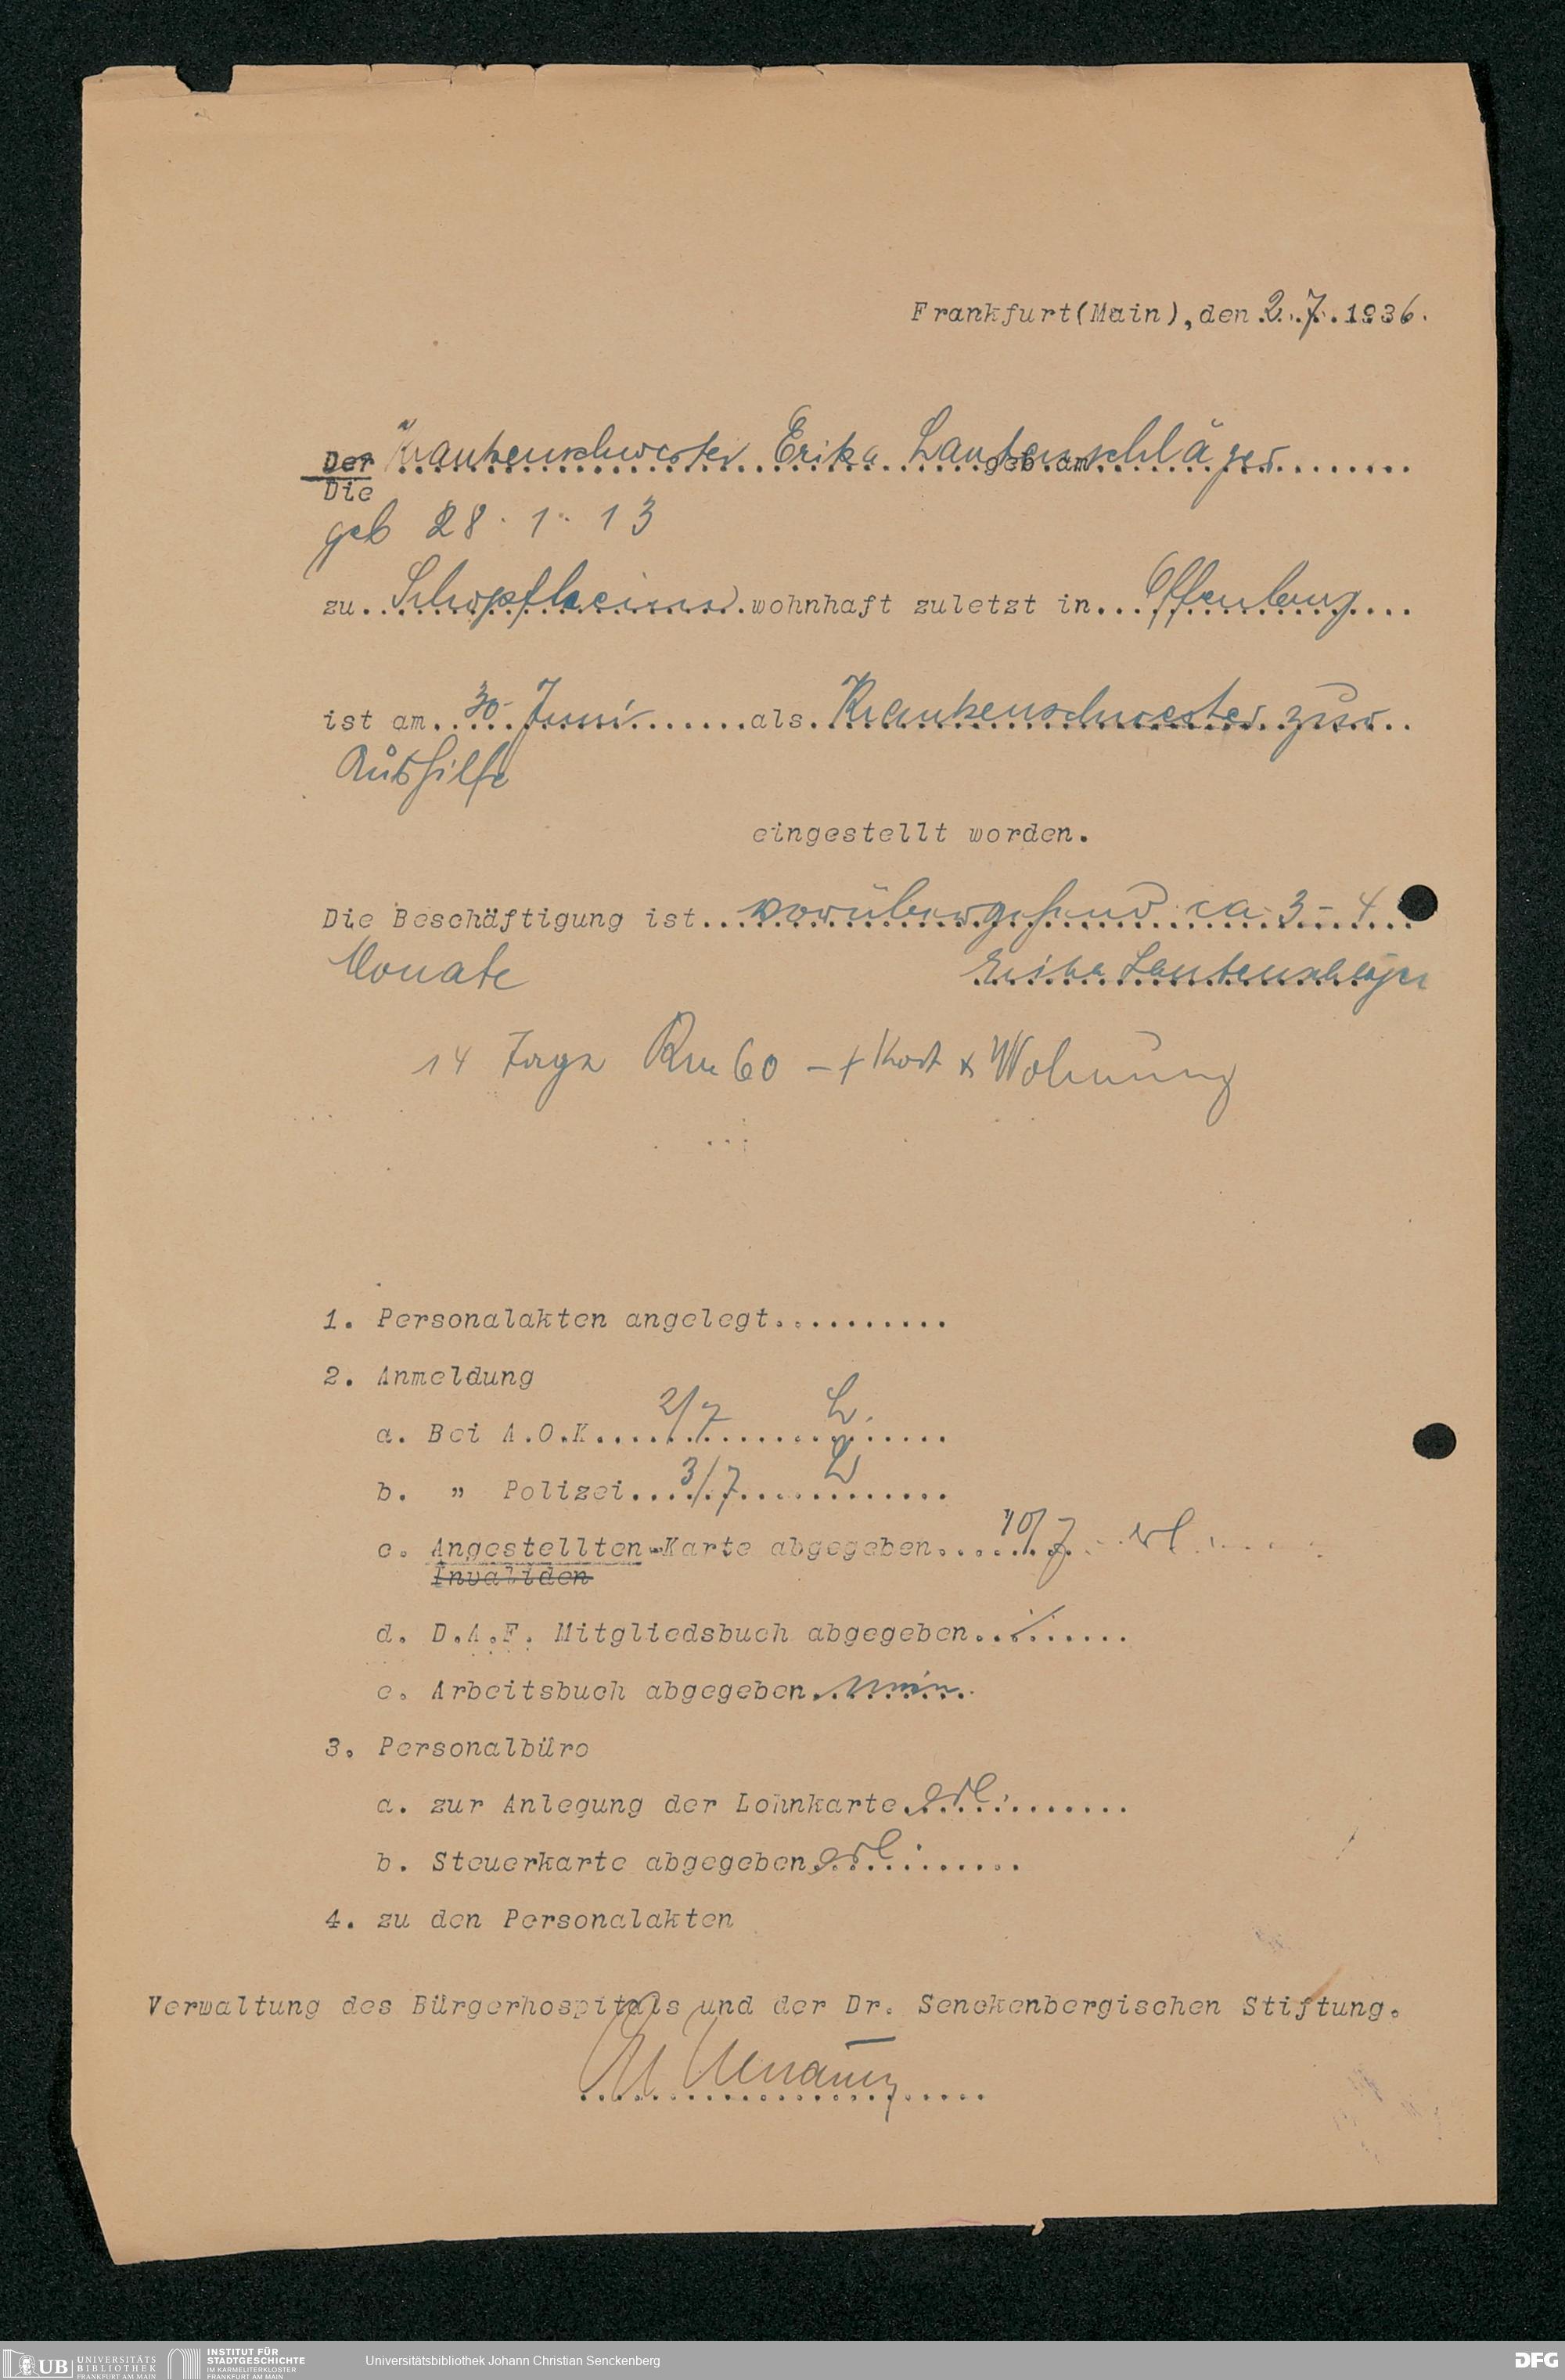 Frankfurt(Main), den 2.7.1936.
Der Krankenschwester Erika Lautenschläger geb am
Die
geb 28.1.13
zu Schopfheim wohnhaft zuletzt in Offenburg
ist am 30. Juni als Krankenschwester zur
Aushilfe
eingestellt worden.
Die Beschäftigung ist vorübergehend ca 3-4
Monate Erika Lautenschläger
14 Tage Rm 60 - + Kost & Wohnung
1. Personalakten angelegt...........
2. Anmeldung
a. Bei A.O.K. 2/7 L.
b. " Polizei 3/7 L
c. Angestellten-Karte abgegeben 10/7 erl.
Invaliden
d. D.A.F. Mitgliedsbuch abgegeben ./.
e. Arbeitsbuch abgegeben
3. Personalbüro
a. zur Anlegung der Lohnkarte erl.
b. Steuerkarte abgegeben erl.
4. zu den Personalakten
Verwaltung des Bürgerhospitals und der Dr. Senckenbergischen Stiftung.
UB UNIVERSITÄTS
BIBLIOTHEK
FRANKFURT AM MAIN
INSTITUT FÜR
STADTGESCHICHTE
IM KARMELITERKLOSTER
FRANKFURT AM MAIN
Universitätsbibliothek Johann Christian Senckenberg
DFG